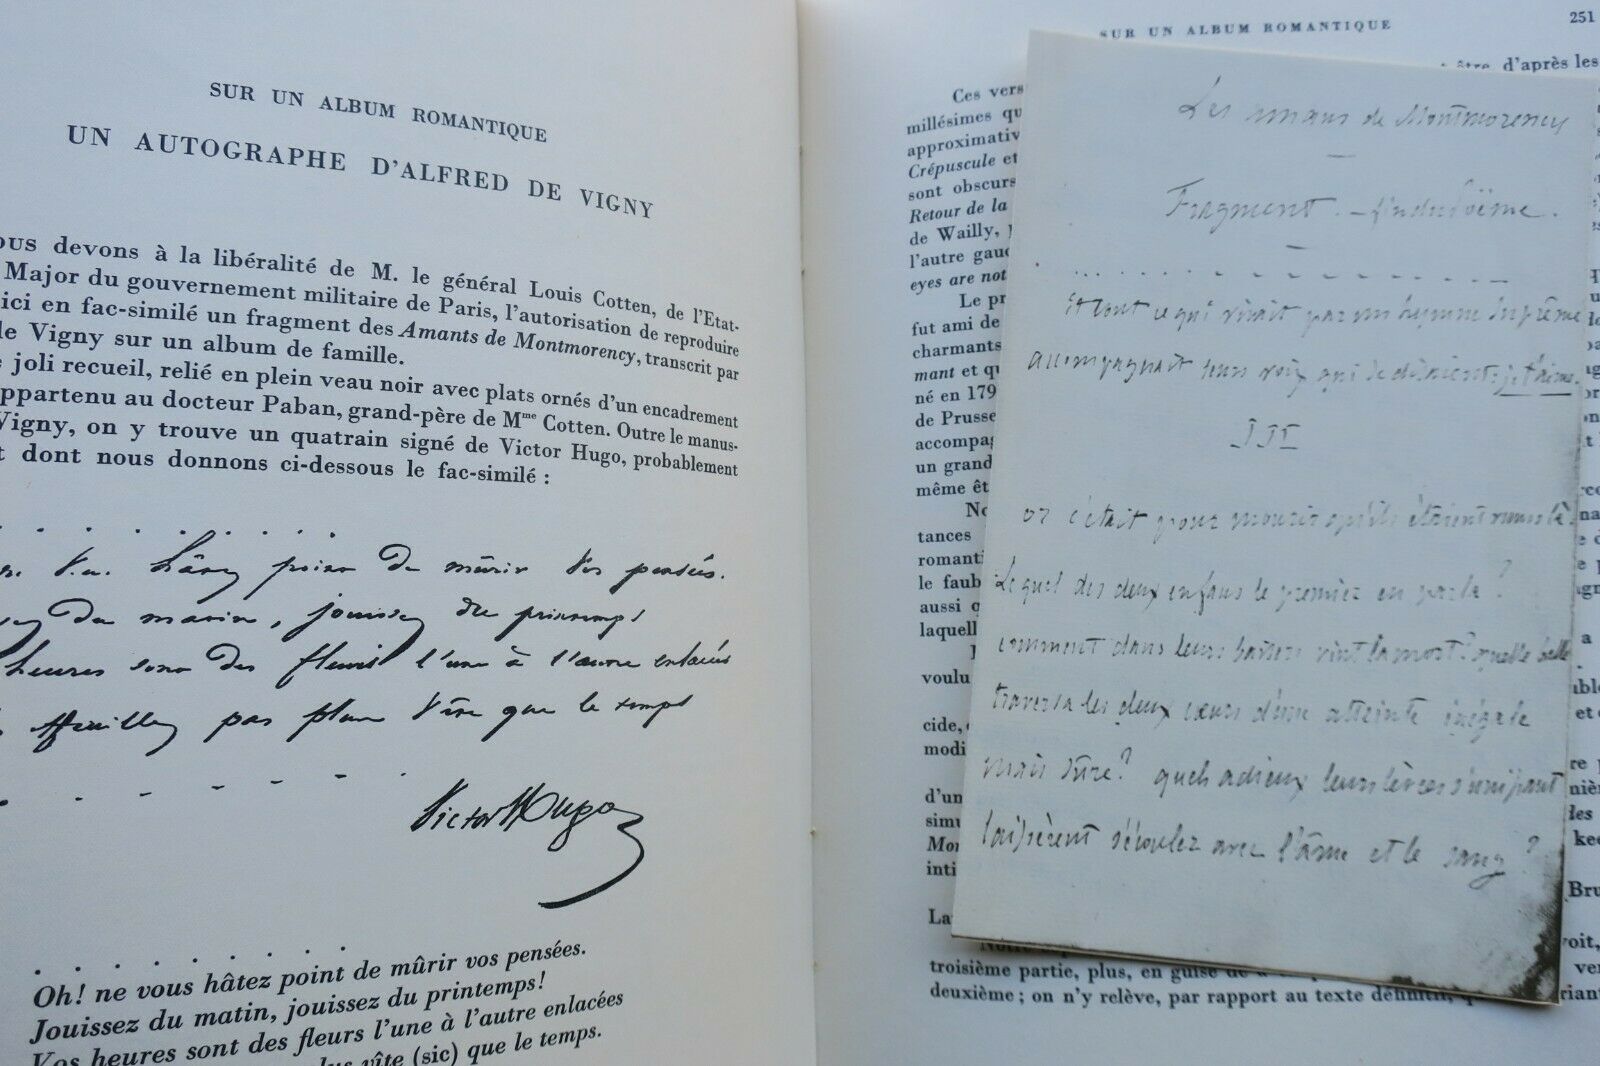 SUR UN ALBUM ROMANTIQUE
UN AUTOGRAPHE D'ALFRED DE VIGNY
ous devons à la libéralité de M. le général Louis Cotten, de l'Etat-
Major du gouvernement militaire de Paris, l'autorisation de reproduire
ici en fac-similé un fragment des Amants de Montmorency, transcrit par
de Vigny sur un album de famille.
joli recueil, relié en plein veau noir avec plats ornés d'un encadrement
appartenu au docteur Paban, grand-père de Mme Cotten. Outre le manus-
Vigny, on y trouve un quatrain signé de Victor Hugo, probablement
t dont nous donnons ci-dessous le fac-similé :
hâtez point de mûrir vos pensées.
du matin, jouissez du printemps!
heures sont des fleurs l'une à l'autre enlacées
effeuillez pas plus vîte que le temps
Victor Hugo
Oh! ne vous hâtez point de mûrir vos pensées.
Jouissez du matin, jouissez du printemps!
Vos heures sont des fleurs l'une à l'autre enlacées
plus vîte (sic) que le temps.
SUR UN ALBUM ROMANTIQUE
251
être, d'après les
Ces vers
millésimes qu
approximativ
Crépuscule et
sont obscurs
Retour de la
de Wailly,
l'autre gauc
eyes are not
Le pr
fut ami de
charmants
mant et qu
né en 179
de Prusse
accompag
un grand
même êt
No
tances
romanti
le faub
aussi q
laquell
voulu
cide,
modi
d'un
simu
Mon
inti
La
Notre
troisième partie, plus, en guise de
deuxième ; on n'y relève, par rapport au texte définitif,
Les amans de Montmorency
Fragment. — fin du Poëme.
Et tout ce qui vivait par un hymne suprême
accompagnait leurs voix qui se disaient: je t'aime.
III
or c'était pour mourir qu'ils étaient venus là.
Lequel des deux enfans le premier en parla ?
comment dans leurs baisers vint la mort ? quelle balle
traversa les deux cœurs d'une atteinte inégale
mais sûre ? quels adieux leurs lèvres s'unissant
laissèrent s'écouler avec l'âme et le sang ?